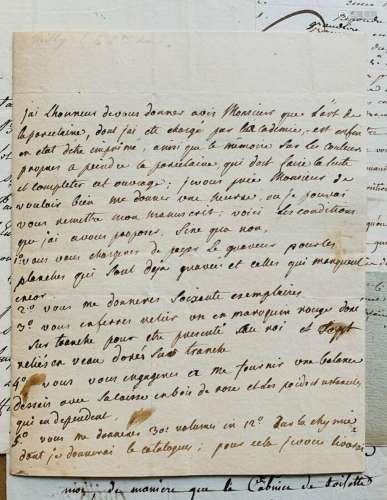 j'ai Lhonneur de vous donner avis Monsieur que L'art de
la porcelaine, dont j'ai eté chargé par L'academie, est enfin
en etat detre imprimé, ainsi que le mémoire sur les couleurs
propres a peindre la porcelaine, qui doit faire la suite
et completer cet ouvrage; je vous prie Monsieur de
vouloir bien me donner une heure, ou je pourrai
vous remettre mon manuscrit; voici les conditions
que j'ai a vous proposer. Sine qua non.
1º vous vous chargerez de payer le graveur pour les
planches qui sont deja gravées et celles qui manquent
encor.
2º vous me donnerez Soixante exemplaires.
3º vous en ferez relier un en maroquin rouge doré
sur tranche pour etre presenté au roi et Sept
reliés en veau dorés sur tranche
4º vous vous engagerez a me fournir une balance
dessais avec sa caisse en bois de rose et les poids et
qui en dependent
5º vous me donnerez 30 volumes in 12º sur la chymie
dont je donnerai le catalogue; pour cela je vous livrerai
de maniere que le Cabinet de